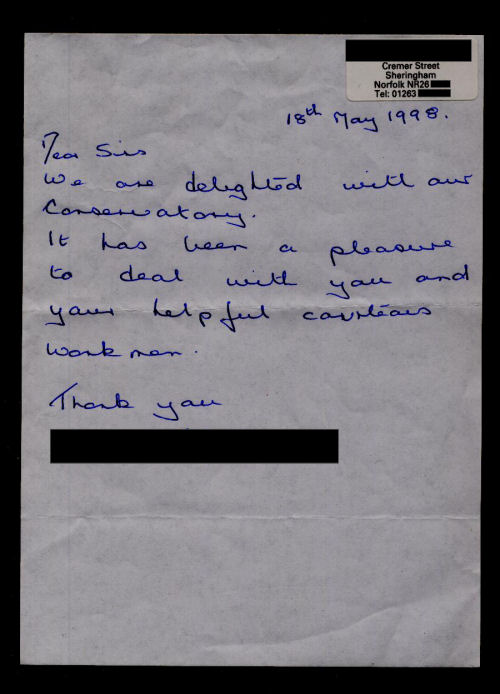 Cremer Street
Sheringham
Norfolk NR26
Tel: 01263
18th May 1998.
Dear Sirs
We are delighted with our
Conservatory.
It has been a pleasure
to deal with you and
your helpful courteous
workmen.
Thank you